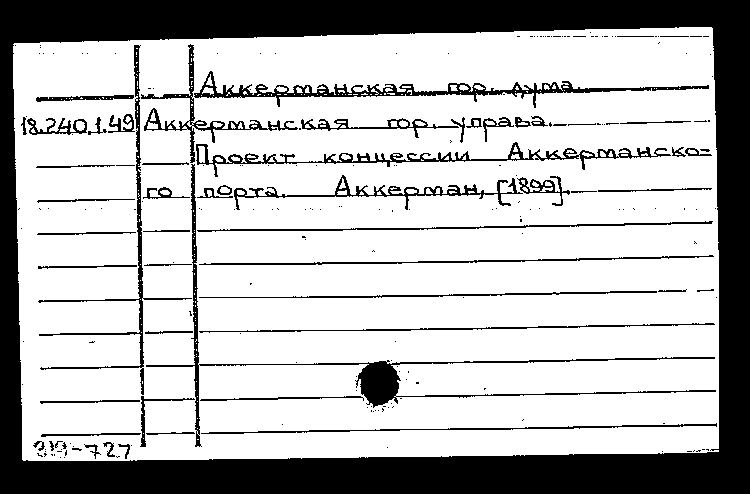 Аккерманская гор. дума.
18.240.1.49 Аккерманская гор. управа.
Проект концессии Аккерманско-
го порта. Аккерман, [1899].
319-727